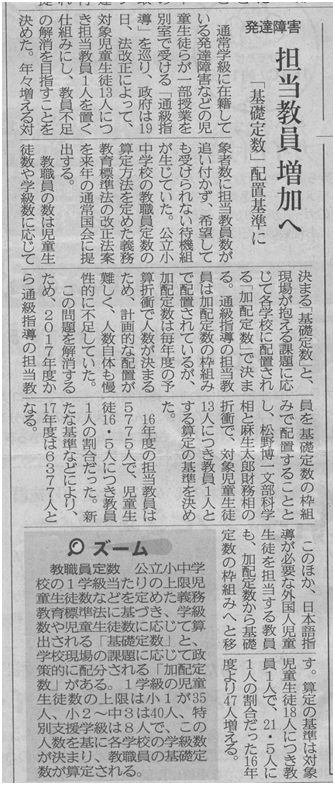 発達障害
担当教員 増加へ
「基礎定数」配置基準に
通常学級に在籍して
いる発達障害などの児
童生徒らが一部授業を
別室で受ける「通級指
導」を巡り、政府は19
日、法改正によって、
対象児童生徒13人につ
き担当教員1人を置く
仕組みにし、教員不足
の解消を目指すことを
決めた。年々増える対
象者数に担当教員数が
追い付かず、希望して
も受けられない待機組
が生じていた。公立小
中学校の教職員定数の
算定方法を定めた義務
教育標準法の改正法案
を来年の通常国会に提
出する。
教職員の数は児童生
徒数や学級数に応じて
決まる「基礎定数」と、
現場が抱える課題に応
じて各学校に配置され
る「加配定数」で決ま
る。通級指導の担当教
員は加配定数の枠組み
で配置されているが、
加配定数は毎年度の予
算折衝で人数が決まる
ため、計画的な配置が
難しく、人数自体も慢
性的に不足していた。
この問題を解消する
ため、2017年度か
ら通級指導の担当教
員を基礎定数の枠組
みで配置することと
し、松野博一文部科学
相と麻生太郎財務相の
折衝で、対象児童生徒
13人につき教員1人と
する算定の基準を決め
た。
16年度の担当教員は
5775人で、児童生
徒16・5人につき教員
1人の割合だった。新
たな基準などにより、
17年度は6377人と
なる。
このほか、日本語指
導が必要な外国人児童
生徒を担当する教員
も、加配定数から基礎
定数の枠組みへと移
す。算定の基準は対象
児童生徒18人につき教
員1人で、21・5人に
1人の割合だった16年
度より47人増える。
ズーム
教職員定数　公立小中学
校の1学級当たりの上限児
童生徒数などを定めた義務
教育標準法に基づき、学級
数や児童生徒数に応じて算
出される「基礎定数」と、
学校現場の課題に応じて政
策的に配分される「加配定
数」がある。1学級の児童
生徒数の上限は小1が35
人、小2～中3は40人、特
別支援学級は8人で、この
人数を基に各学校の学級数
が決まり、教職員の基礎定
数が算定される。